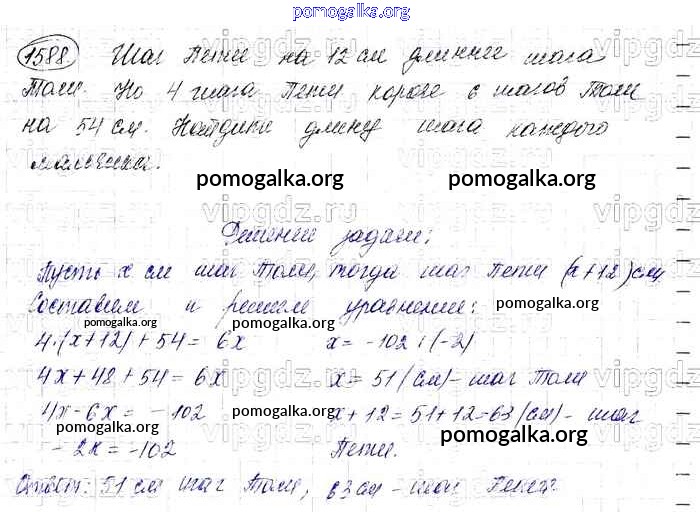 pomogalka.org
1588. Шаг Пети на 12 см длиннее шага
Толи. Но 4 шага Пети короче 6 шагов Толи
на 54 см. Найдите длину шага каждого
мальчика.
pomogalka.org pomogalka.org
Решение задачи:
Пусть x см шаг Толи, тогда шаг Пети (x+12) см.
Составим и решим уравнение:
pomogalka.org pomogalka.org pomogalka.org
4·(x+12)+54=6x x=-102:(-2)
4x+48+54=6x x=51(см)-шаг Толи
4x-6x=-102 x+12=51+12=63(см)-шаг
pomogalka.org pomogalka.org
-2x=-102 Пети.
pomogalka.org pomogalka.org
Ответ: 51 см шаг Толи, 63 см - шаг Пети.